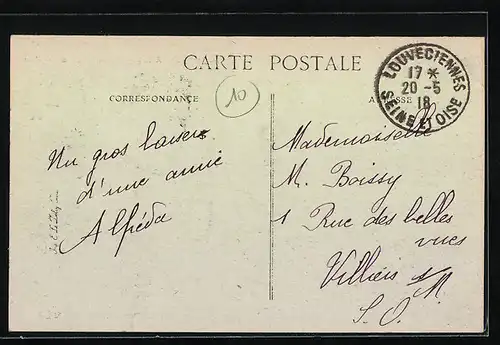 CARTE POSTALE
CORRESPONDANCE
ADRESSE
10
LOUVECIENNES
17 *
20 - 5
18
SEINE ET OISE
Un gros baiser
d'une amie
Alfréda
Mademoiselle
M. Boissy
1 Rue des belles
vues
Villiers s/M
S. O.